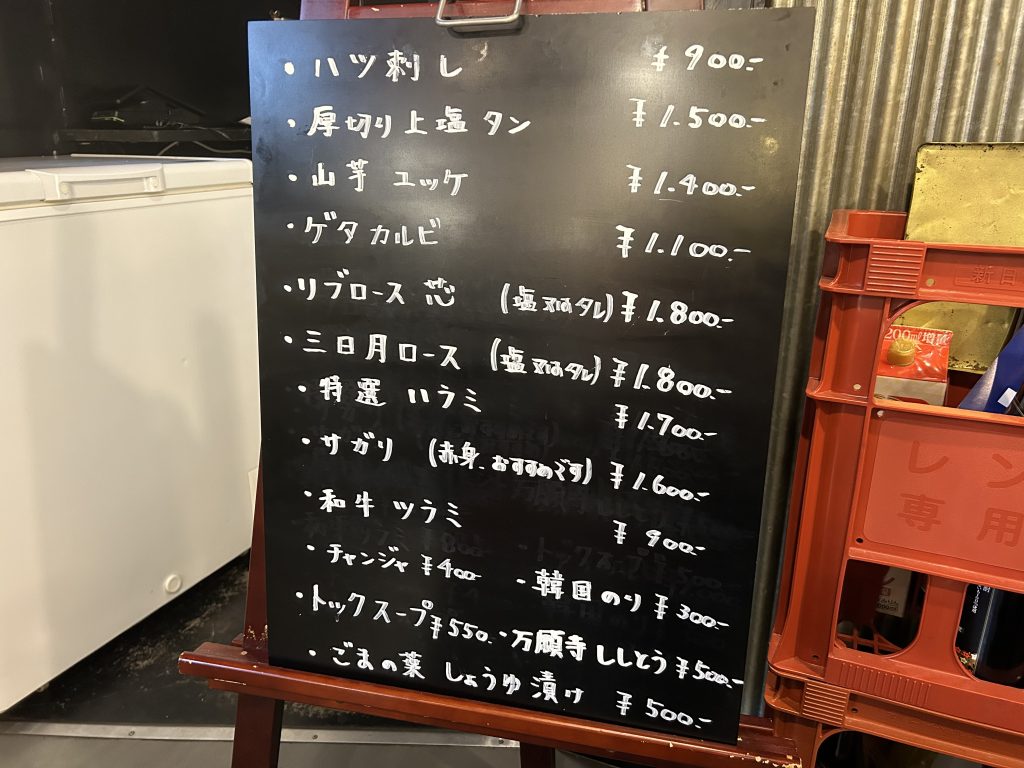 ・ハツ刺し ¥900.-
・厚切り上塩タン ¥1.500.-
・山芋ユッケ ¥1.400.-
・ゲタカルビ ¥1.100.-
・リブロース芯 (塩又はタレ) ¥1.800.-
・三日月ロース (塩又はタレ) ¥1.800.-
・特選ハラミ ¥1.700.-
・サガリ (赤身、おすすめです) ¥1.600.-
・和牛ツラミ ¥900.-
・チャンジャ ¥400.- ・韓国のり ¥300.-
・トックスープ ¥550. ・万願寺ししとう ¥500.-
・ごまの葉しょうゆ漬け ¥500.-
新日
200ml増量
レン
専用